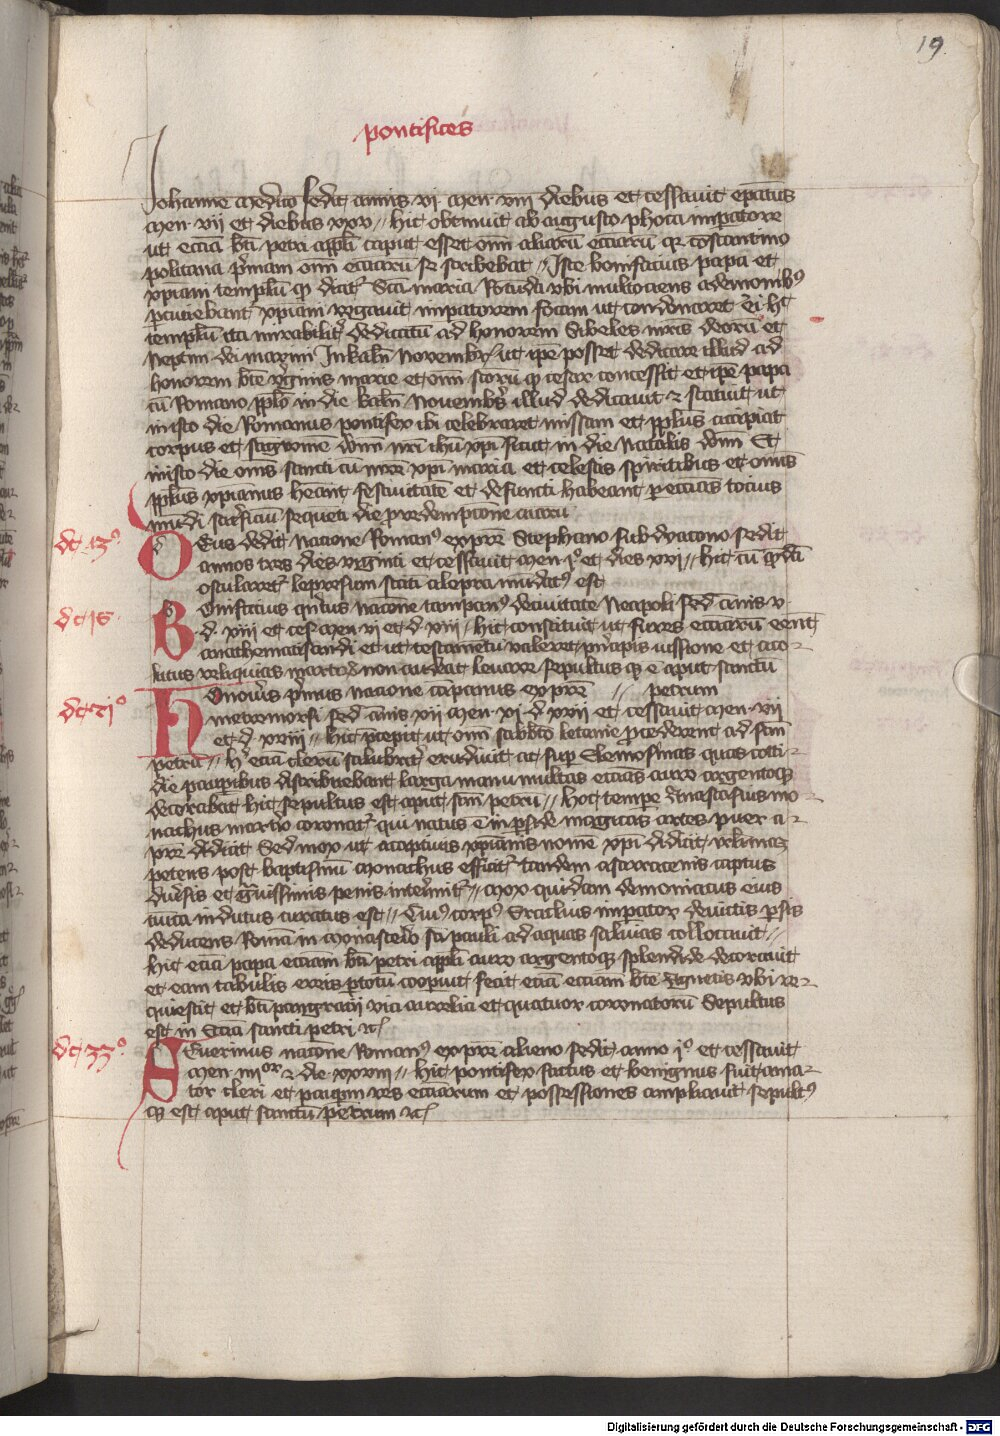 19
pontifices
Johanne medico sedit annis vi men. viii diebus et cessavit epatus
men. vii et diebus xxv // hic obtinuit ab augusto phoca impatore
ut eccia bti petri appli caput esset oim aliaru ecciaru qr costantino
politana pmam oim ecciaru se scribebat // Iste bonifacius papa et
xpiani templu qd dicit Sca maria Rotuda ubi multociens a demonibus
pcuciebant xpiani rogavit impatorem focam ut condonaret ei hc
templu ita mirabilit dedicatu ad honorem Sibeles mris deoru et
Neptuni dei marini In kaln Novembr ut ipe posset dedicare illud ad
honorem bte virginis marie et oim scoru qd cesar concessit et ipe papa
cu Romano pplo in die kaln Novembr illud dedicavit et statuit ut
in isto die Romanus pontifex ibi celebraret missam et pplus accipiat
corpus et sanguinem dni nri ihu xpi sicut in die Natalis dni Et
in isto die oms sancti cu mre xpi maria et celestis spiritibus et omis
pplus xpianus heant festivitate et defuncti habeant p eccias tocius
mudi sacrificiu sequeti die p redemptione aiaru
dc 13° DEus dedit nacione Romanus ex pre Stephano subdyacono sedit
annos tres dies viginti et cessavit men i° et dies xvi // hic cu quda
oscularet leprosum stati a lepra mudatus est
dc 16 BOnifacius quintus nacone campanus de civitate Neapoli sed annis v
d. xiii et ces men vi et d. xiii // hic constituit ut fures ecciaru eent
anathematisandi et ut testametu valeret principis iussione et aco
litus reliquias martiru non audeat levare sepultus qz e aput sanctu
petrum
dc 21° HOnorius primus nacione capanus ex pre //
metromorsi sed annis xii men. xi d. xvii et cessavit men. vii
et d. xviii // hic precepit ut omi sabbto letanie procederent ad scm
petru // hic ecia cleru salubrit erudivit ac sup Elemosinas quas cotti
die paupibus distribuebant larga manu multas eccias auro argentoqz
decorabat hic sepultus est aput scm petru // hoc tempe Anastasius mo
nachus martirio coronat qui natus e in pside magicas artes puer a
pre didicit Sed mox ut a captivis xpianis nome xpi didicit
petens post baptismu monachus efficit tandem a sarracenis captus
diversis et gravissimis penis interimit // mox quidam demoniacus eius
tuica indutus curatus est // Cuius corpus Eraclius impator devictis persis
deducens Roma in monasterio sci pauli ad aquas salvias collocavit //
hic ecia papa ecciam bti petri appli auro argentoqz splendide decoravit
et eam tabulis ereis p totu cooperuit fecit ecia ecciam bte Agnetis ubi re
quiescit et bti pangracii via aurelia et quatuor coronatoru Sepultus
est in Eccia sancti petri etc
dc 33° SEverinus nacione Romanus ex pre alieno sedit anno i° et cessavit
men. iiii or et die xxviii // hic pontifex sanctus et benignus fuit ama
tor cleri et paupum res ecciarum et possessiones ampliavit sepultus
qz est aput sanctu petrum etc
Digitalisierung gefördert durch die Deutsche Forschungsgemeinschaft - DFG